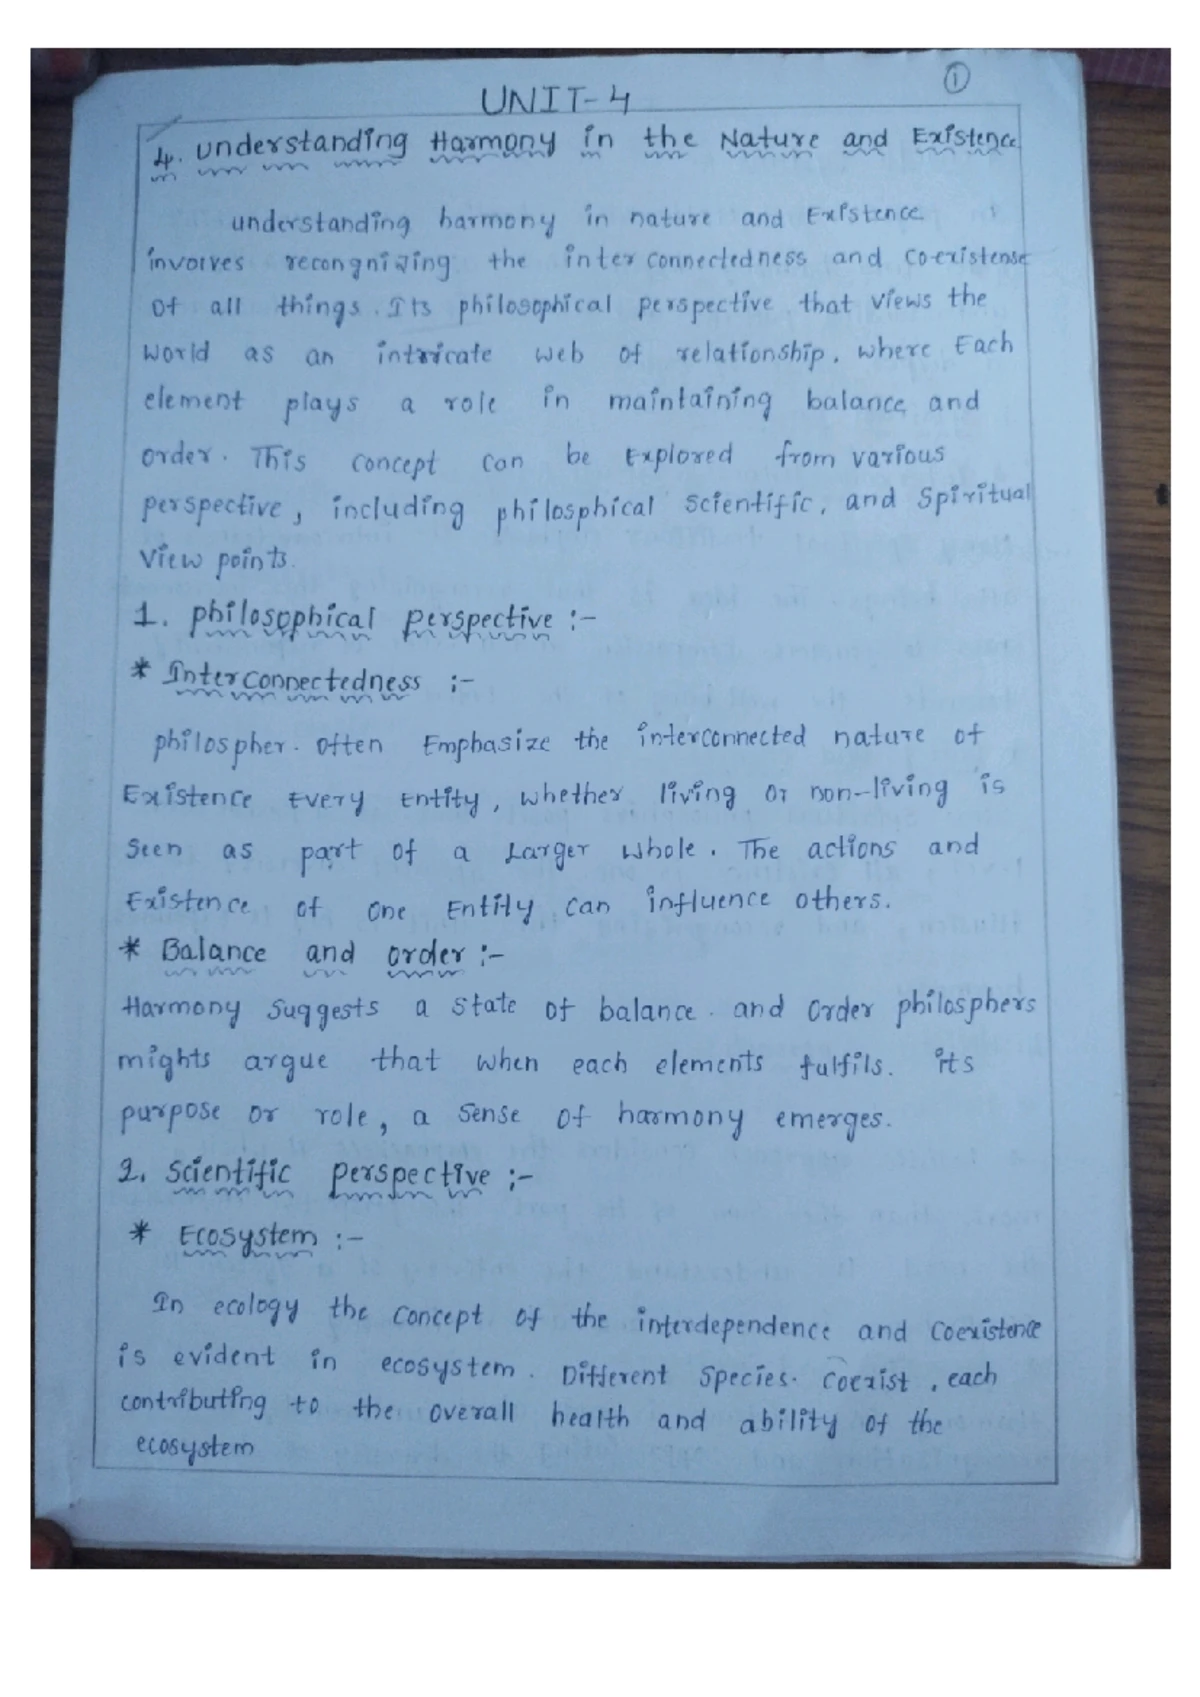 ①
UNIT-4
4. Understanding Harmony in the Nature and Existence
understanding harmony in nature and Existence
involves recongnizing the inter connectedness and co-existense
of all things. Its philosophical perspective that views the
World as an intricate web of relationship, where Each
element plays a role in maintaining balance and
order. This concept can be Explored from various
perspective, including philosphical scientific, and Spiritual
View points.
1. philosophical perspective :-
* Interconnectedness :-
philospher. often Emphasize the interconnected nature of
Existence Every Entity, whether living or non-living is
Seen as part of a Larger whole. The actions and
Existence of one Entity can influence others.
* Balance and order :-
Harmony suggests a state of balance. and Order philosphers
mights argue that when each elements fulfils. its
purpose or role, a sense of harmony emerges.
2. Scientific perspective :-
* Ecosystem :-
In ecology the concept of the interdependence and coexistence
is evident in ecosystem. Different Species. Coexist, each
contributing to the overall health and ability of the
ecosystem